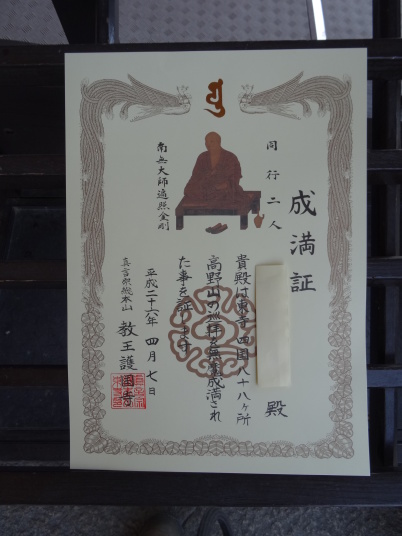 成満証
殿
同行二人
南無大師遍照金剛
貴殿は東寺四国八十八ヶ所
高野山の巡拝を無事成満され
た事を証します
平成二十六年 四月七日
真言宗総本山 教王護国寺